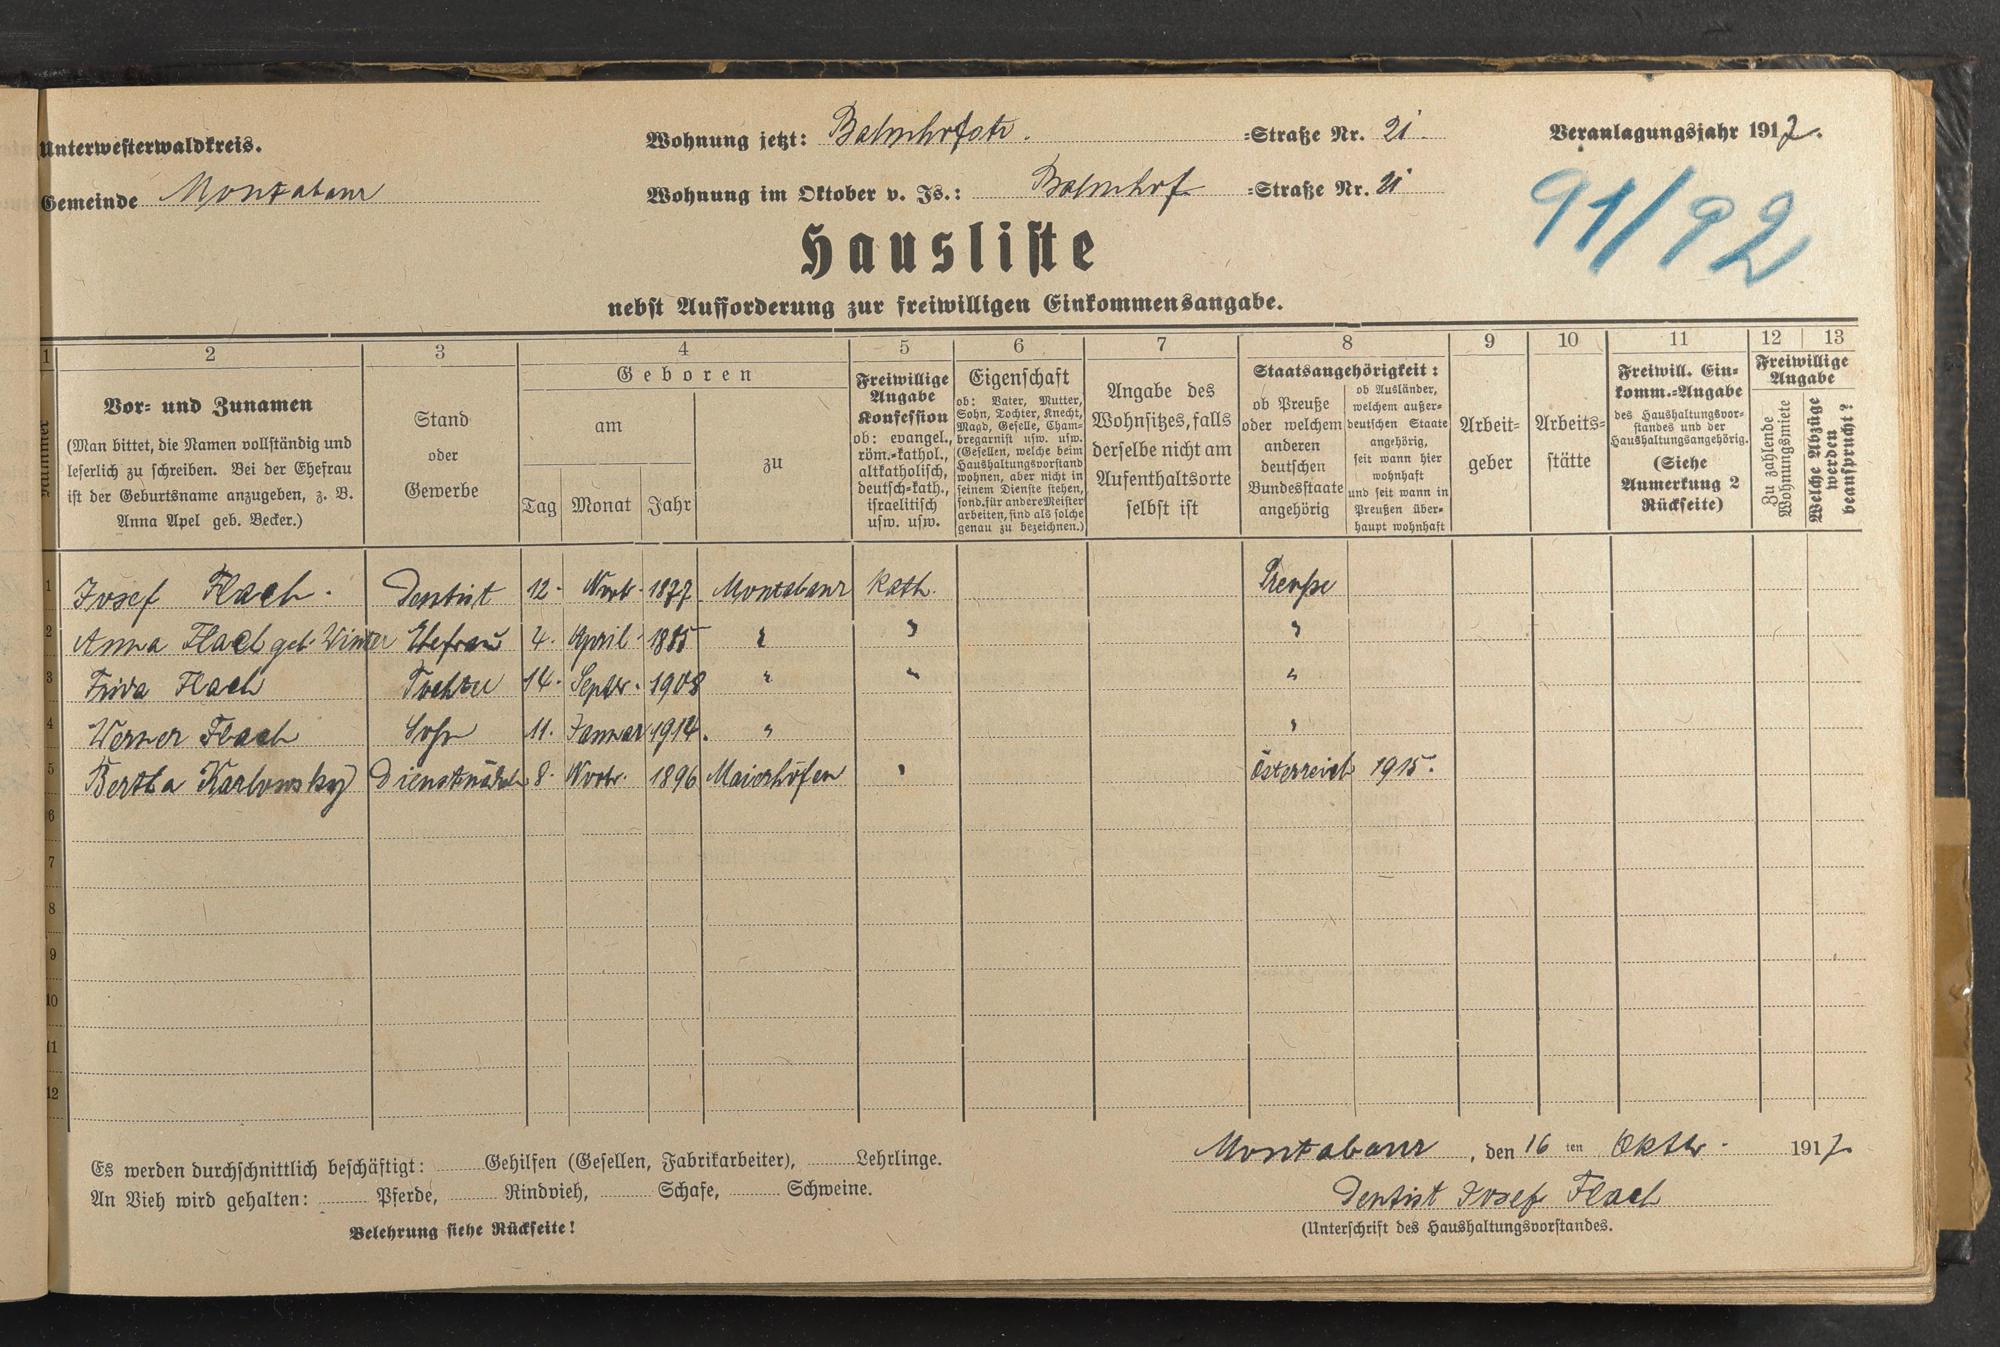 Unterwesterwaldkreis.
Wohnung jetzt: Bahnhofstr. -Straße Nr. 21
Veranlagungsjahr 1917.
Gemeinde Montabaur
Wohnung im Oktober v. Js.: Bahnhof -Straße Nr. 21
91/92
Hausliste
nebst Aufforderung zur freiwilligen Einkommensangabe.
1 2 3 4 5 6 7 8 9 10 11 12 13
Nummer
Vor- und Zunamen
(Man bittet, die Namen vollständig und
leserlich zu schreiben. Bei der Ehefrau
ist der Geburtsname anzugeben, z. B.
Anna Apel geb. Becker.)
Stand
oder
Gewerbe
Geboren
am
Tag Monat Jahr
zu
Freiwillige
Angabe
Konfession
ob: evangel.,
röm.-kathol.,
altkatholisch,
deutsch-kath.,
israelitisch
usw. usw.
Eigenschaft
ob: Vater, Mutter,
Sohn, Tochter, Knecht,
Magd, Geselle, Cham-
bregarnist usw. usw.
(Gesellen, welche beim
Haushaltungsvorstand
wohnen, aber nicht in
seinem Dienste stehen,
sond. für andere Meister
arbeiten, sind als solche
genau zu bezeichnen.)
Angabe des
Wohnsitzes, falls
derselbe nicht am
Aufenthaltsorte
selbst ist
Staatsangehörigkeit:
ob Preuße
oder welchem
anderen
deutschen
Bundesstaate
angehörig
ob Ausländer,
welchem außer-
deutschen Staate
angehörig,
seit wann hier
wohnhaft
und seit wann in
Preußen über-
haupt wohnhaft
Arbeit-
geber
Arbeits-
stätte
Freiwill. Ein-
komm.-Angabe
des Haushaltungsvor-
standes und der
Haushaltungsangehörig.
(Siehe
Anmerkung 2
Rückseite)
Freiwillige
Angabe
Zu zahlende
Wohnungsmiete
Welche Abzüge
werden
beansprucht?
1 Josef Flach. Dentist 12. Novb. 1877 Montabaur Kath. Preuße
2 Anna Flach geb. Winter Ehefrau 4. April 1885 " " "
3 Frida Flach Tochter 14. Septbr. 1908 " " "
4 Werner Flach Sohn 11. Januar 1914. " " "
5 Bertha Karlowsky Dienstmädch. 8. Novbr. 1896 Maierhöfen " Österreich 1915.
6
7
8
9
10
11
12
Es werden durchschnittlich beschäftigt: Gehilfen (Gesellen, Fabrikarbeiter), Lehrlinge.
An Vieh wird gehalten: Pferde, Rindvieh, Schafe, Schweine.
Belehrung siehe Rückseite!
Montabaur, den 16 ten Oktbr. 1917
Dentist Josef Flach
(Unterschrift des Haushaltungsvorstandes.